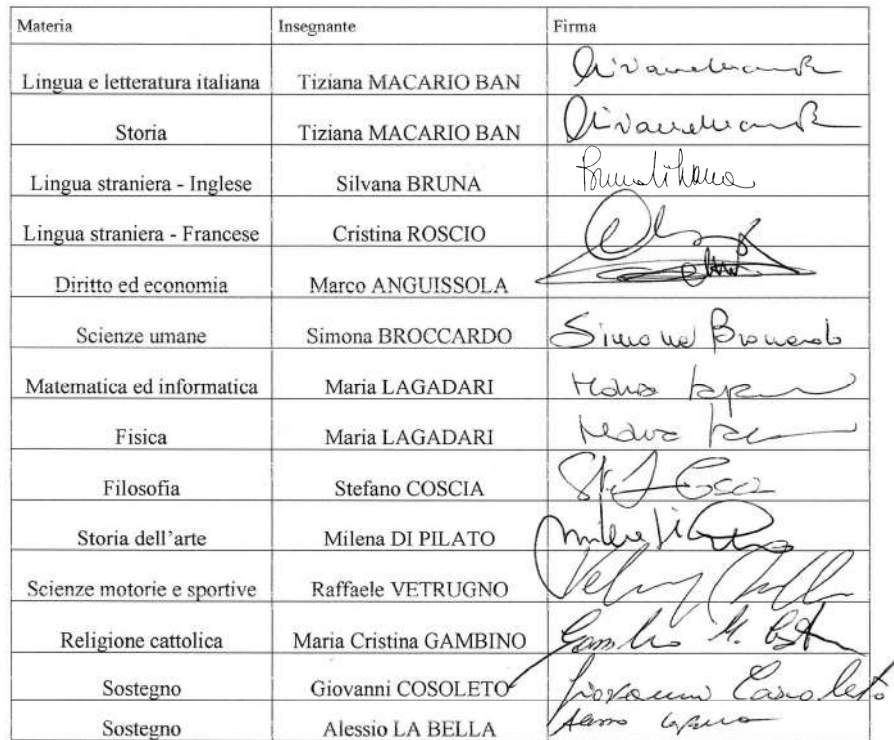 Materia Insegnante Firma
Lingua e letteratura italiana Tiziana MACARIO BAN
Storia Tiziana MACARIO BAN
Lingua straniera - Inglese Silvana BRUNA
Lingua straniera - Francese Cristina ROSCIO
Diritto ed economia Marco ANGUISSOLA
Scienze umane Simona BROCCARDO Simona Broccardo
Matematica ed informatica Maria LAGADARI Maria
Fisica Maria LAGADARI Maria
Filosofia Stefano COSCIA
Storia dell'arte Milena DI PILATO
Scienze motorie e sportive Raffaele VETRUGNO
Religione cattolica Maria Cristina GAMBINO
Sostegno Giovanni COSOLETO Giovanni Cosoleto
Sostegno Alessio LA BELLA